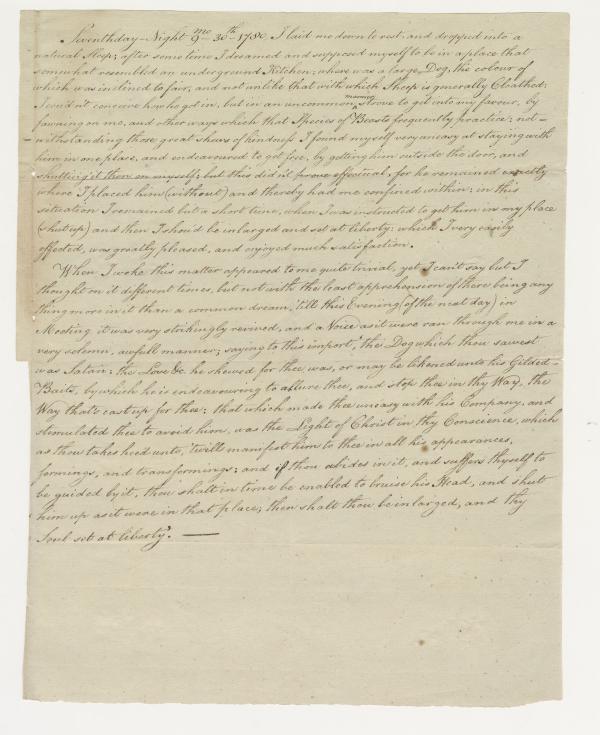 Seventhday-Night 9mo 30th 1780 I laid me down to rest, and dropped into a
natural Sleep; after some time I dreamed and supposed myself to be in a place that
somewhat resembled an underground Kitchen; where was a large Dog, the colour of
which was inclined to fair, and not unlike that with which Sheep is generally Cloathed:
I could'nt conceive how he got in, but in an uncommon manner strove to get into my favour, by
fawning on me, and other ways which that Species of Beasts frequently practice; not-
withstanding those great shews of kindness I found myself very uneasy at staying with
him in one place, and endeavoured to get free, by getting him outside the door, and
shutting it then on myself; but this did'nt prove effectual, for he remained exactly
where I placed him (without) and thereby had me confined within: in this
situation I remained but a short time, when I was instructed to get him in my place
(shut up) and then I should be inlarged and set at liberty: which I very easily
effected, was greatly pleased, and enjoyed much satisfaction.
When I woke this matter appeared to me quite trivial, yet I can't say but I
thought on it different times, but not with the least apprehension of there being any
thing more in it than a common dream, 'till this Evening (of the next day) in
Meeting it was very strikingly revived, and a Voice as it were ran through me in a
very solemn, awfull manner; saying to this import, 'the Dog which thou sawest
was Satan: the Love &c he shewed for thee was, or may be likened unto his Gilded-
Baits, by which he is endeavouring to allure thee, and stop thee in thy Way, the
Way that's cast up for thee: that which made thee uneasy with his Company, and
stimulated thee to avoid him, was the Light of Christ in thy Conscience, which
as thou takes heed unto, 'twill manifest him to thee in all his appearances,
formings, and transformings; and if thou abides in it, and suffers thyself to
be guided by it, thou shalt in time be enabled to bruise his Head, and shut
him up as it were in that place; then shalt thou be inlarged, and thy
Soul set at liberty'. —